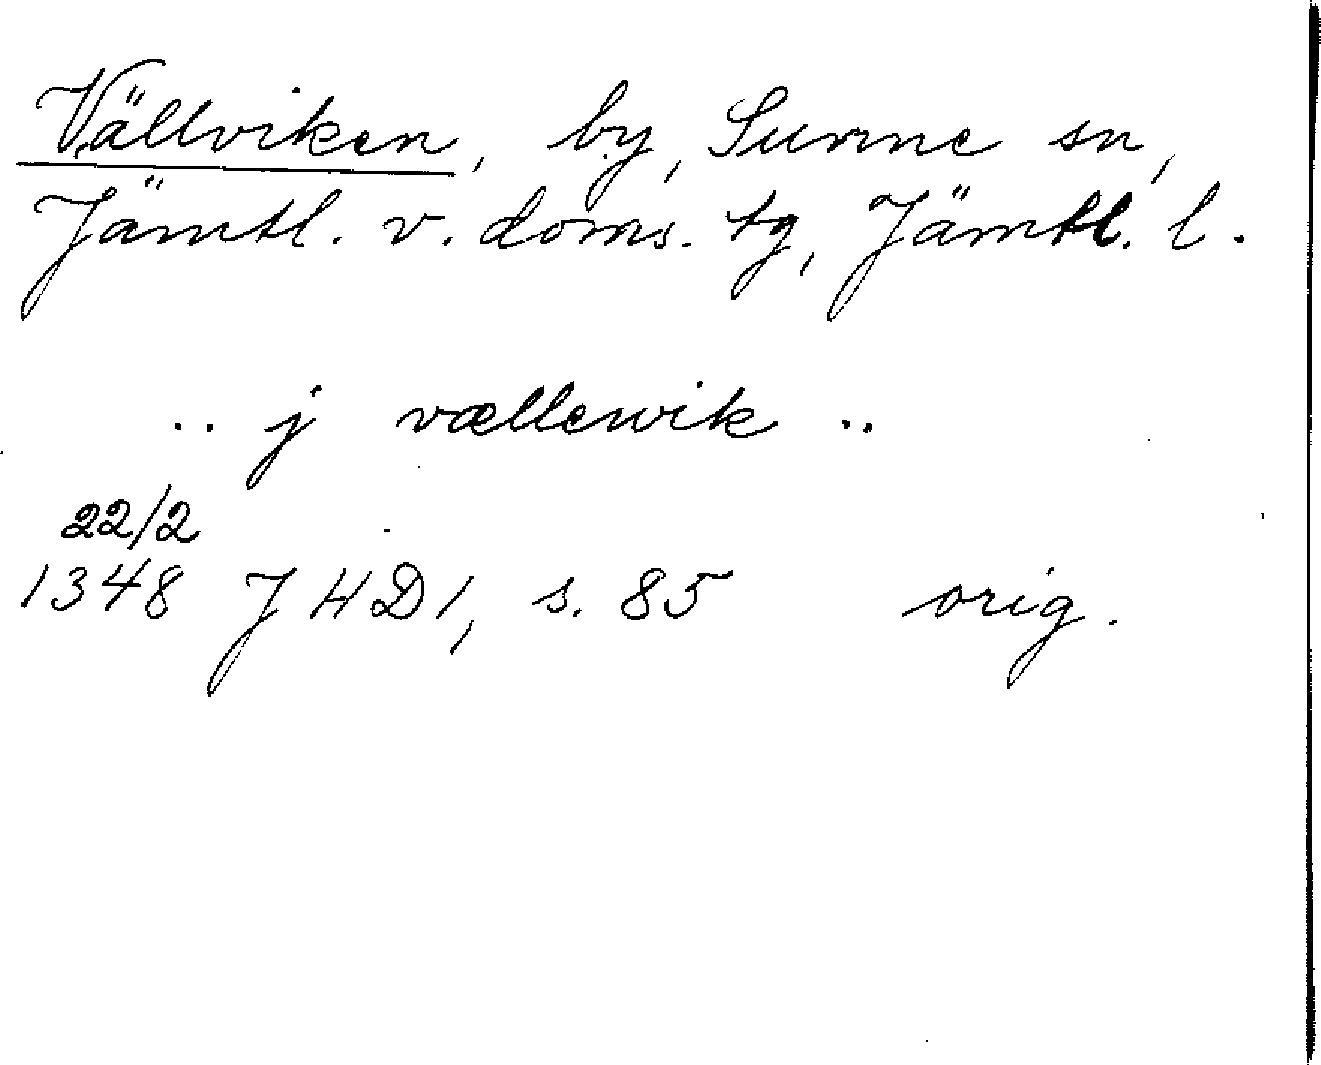 Vällviken, by, Sunne sn,
Jämtl. v. doms. tg, Jämtl. l.
.. j vællewik ..
22/2
1348 J H D 1, s. 85 orig.